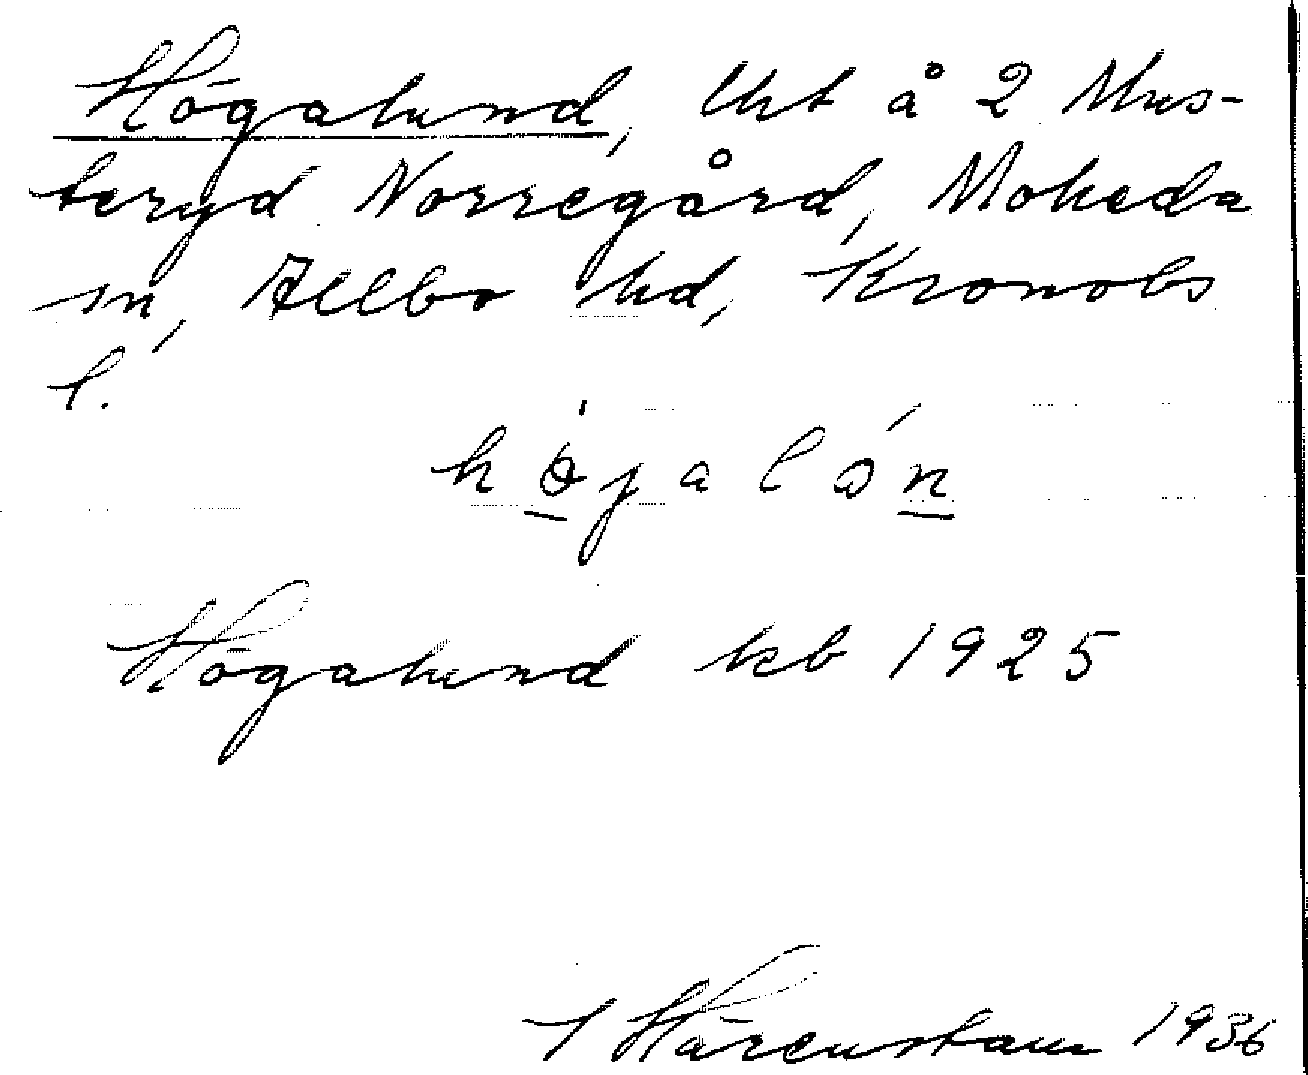 Högalund, lht å 2 Mus-
teryd Norregård, Moheda
sn, Allbo hd, Kronobs
l.
högalón
Högalund kb 1925
Härenstam 1936